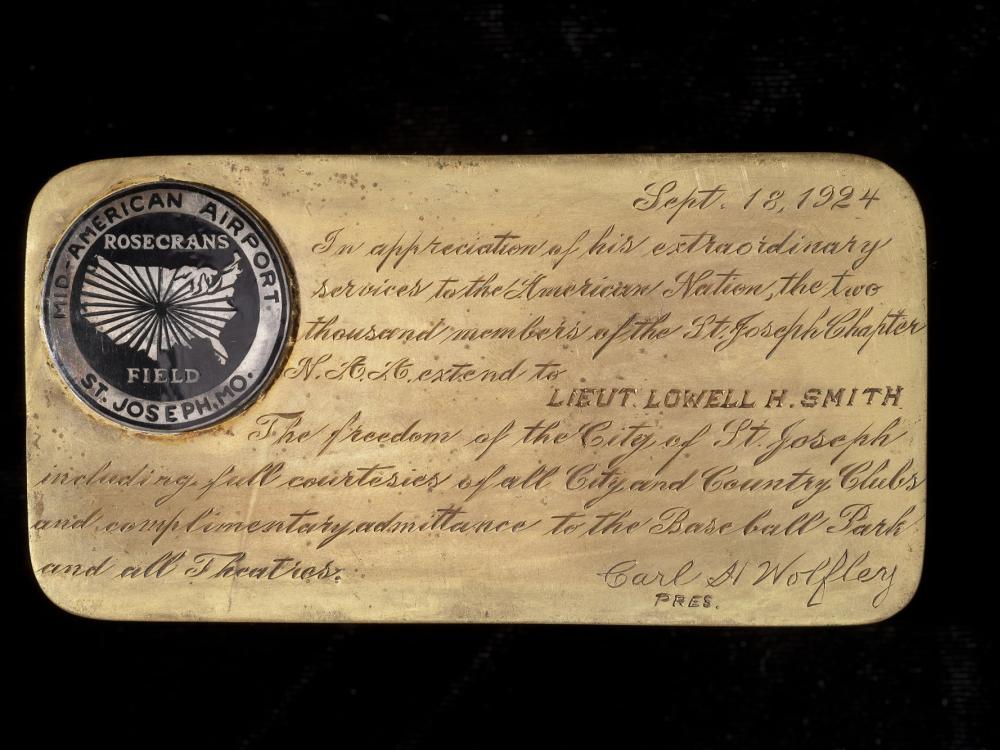 MID-AMERICAN AIRPORT
ROSECRANS
FIELD
ST. JOSEPH, MO.
Sept. 18, 1924
In appreciation of his extraordinary
services to the American Nation, the two
thousand members of the St. Joseph Chapter
N.A.A. extend to
LIEUT. LOWELL H. SMITH
The freedom of the City of St. Joseph
including full courtesies of all City and Country Clubs
and complimentary admittance to the Base ball Park
and all Theatres.
Carl H Wolfley
PRES.